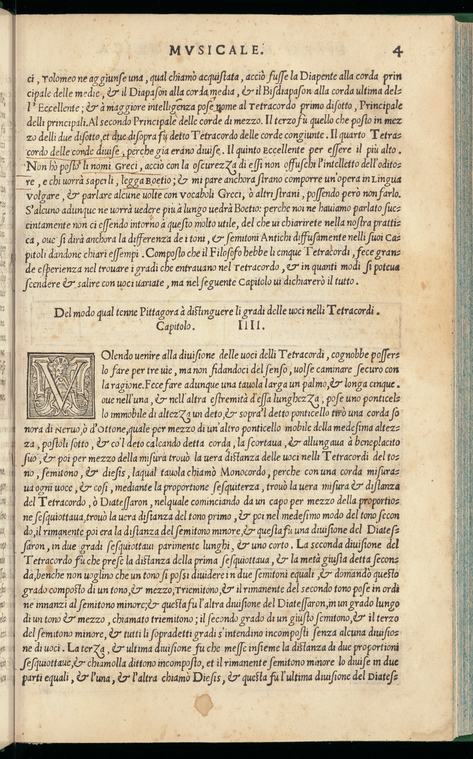 MVSICALE. 4
ci, Tolomeo ne aggiunse una, qual chiamò acquistata, acciò fusse la Diapente alla corda prin
cipale delle medie, & il Diapason alla corda media, & il Bisdiapason alla corda ultima del=
l'Eccellente; & à maggiore intelligenza pose nome al Tetracordo primo disotto, Principale
delli principali. Al secondo Principale delle corde di mezzo. Il terzo fù quello che posto in mez
zo delli due disotto, et due disopra fù detto Tetracordo delle corde congiunte. Il quarto Tetra=
cordo delle corde diuise, perche già erano diuise. Il quinto Eccellente per essere il più alto.
Non hò posto li nomi Greci, acciò con la oscurezza di essi non offuschi l'intelletto dell'audito=
re, e chi uorrà saperli, legga Boetio; & mi pare anchora strano comporre un'opera in Lingua
volgare, & parlare alcune uolte con vocaboli Greci, ò altri strani, possendo però non farlo.
S'alcuno adunque ne uorrà uedere più à lungo uedrà Boetio: perche noi ne hauiamo parlato suc=
cintamente non ci essendo intorno à questo molto utile, del che ui chiarirete nella nostra prattis
ca, oue si dirà anchora la differenza de i toni, & semitoni Antichi diffusamente nelli suoi Ca=
pitoli dandone chiari essempi. Composto che il Filosofo hebbe li cinque Tetracordi, fece gran=
de esperienza nel trouare i gradi che entrauano nel Tetracordo, & in quanti modi si poteua
scendere & salire con uoci uariate, ma nel seguente Capitolo ui dichiarerò il tutto.
Del modo qual tenne Pittagora à distinguere li gradi delle uoci nelli Tetracordi.
Capitolo. IIII.
VOlendo uenire alla diuisione delle uoci delli Tetracordi, cognobbe posser=
lo fare per tre uie, ma non fidandoci del senso, uolse caminare securo con
la ragione. Fece fare adunque una tauola larga un palmo, & longa cinque.
oue nell'una, & nell'altra estremità d'essa lunghezza, pose uno ponticel=
lo immobile di altezza un deto, & sopra'l detto ponticello tirò una corda so
nora di Neruo, ò d'Ottone, quale per mezzo di un'altro ponticello mobile della medesima altez=
za, postoli sotto, & co'l deto calcando detta corda, la scortaua, & allungaua à beneplacito
suo, & poi per mezzo della misura trouò la uera distanza delle uoci nelli Tetracordi del to=
no, semitono, & diesis, laqual tauola chiamò Monocordo, perche con una corda misura=
ua ogni uoce, & così, mediante la proportione sesquiterza, trouò la uera misura & distanza
del Tetracordo, ò Diatessaron, nelquale cominciando da un capo per mezzo della proportio=
ne sesquiottaua, trouò la uera distanza del tono primo, & poi nel medesimo modo del tono secon
do, il rimanente poi era la distanza del semitono minore, & questa fù una diuisione del Diates=
saron, in due gradi sesquiottaui parimente lunghi, & uno corto. La seconda diuisione del
Tetracordo fù che prese la distanza della prima sesquiottaua, & la metà giusta detta secon=
da, benche non uoglino che un tono si possi diuidere in due semitoni equali, & domandò questo
grado composto di un tono, & mezzo, Triemitono, & il rimanente del secondo tono pose in ordi
ne innanzi al semitono minore; & questa fu l'altra diuisione del Diatessaron, in un grado lungo
di un tono & mezzo, chiamato triemitono; il secondo grado di un giusto semitono, & il terzo
del semitono minore, & tutti li sopradetti gradi s'intendino incomposti senza alcuna diuisio=
ne di uoci. La terza, & ultima diuisione fu che messe insieme la distanza di due proportioni
sesquiottaue, & chiamolla dittono incomposto, et il rimanente semitono minore lo diuise in due
parti equali, & l'una, & l'altra chiamò Diesis, & questa fu l'ultima diuisione del Diates=